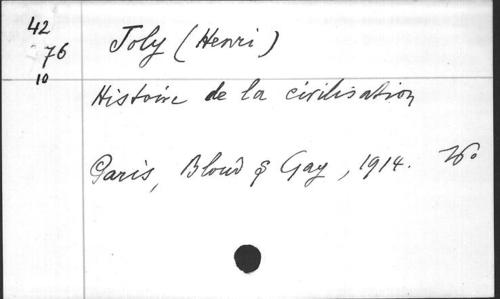 42
76
10
Joly (Henri)
Histoire de la civilisation
Paris, Bloud & Gay, 1914.